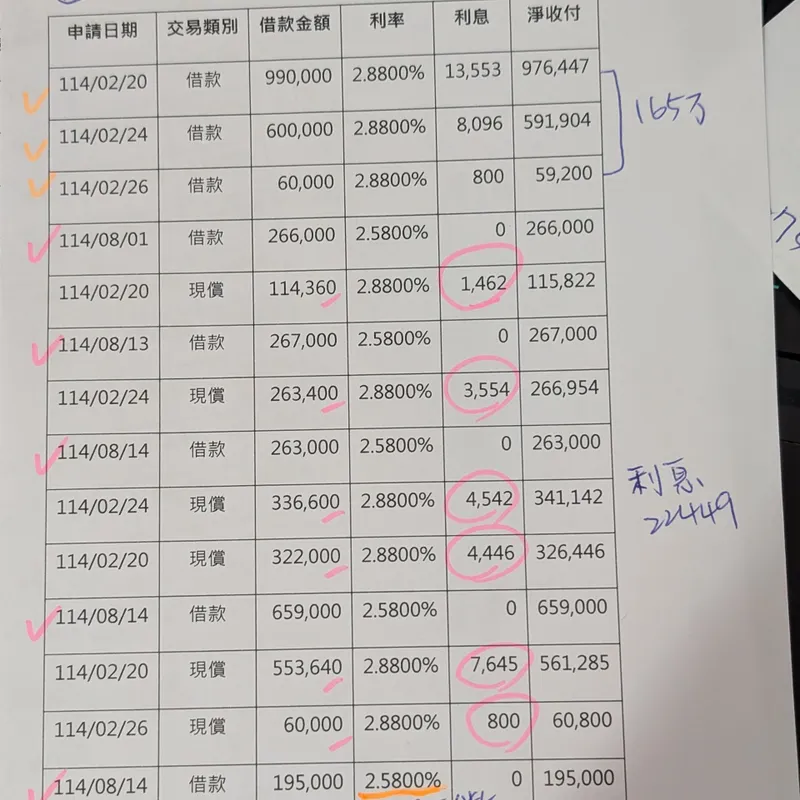 申請日期 交易類別 借款金額 利率 利息 淨收付
114/02/20 借款 990,000 2.8800% 13,553 976,447
114/02/24 借款 600,000 2.8800% 8,096 591,904
165万
114/02/26 借款 60,000 2.8800% 800 59,200
114/08/01 借款 266,000 2.5800% 0 266,000
114/02/20 現償 114,360 2.8800% 1,462 115,822
114/08/13 借款 267,000 2.5800% 0 267,000
114/02/24 現償 263,400 2.8800% 3,554 266,954
114/08/14 借款 263,000 2.5800% 0 263,000
114/02/24 現償 336,600 2.8800% 4,542 341,142
利息
22449
114/02/20 現償 322,000 2.8800% 4,446 326,446
114/08/14 借款 659,000 2.5800% 0 659,000
114/02/20 現償 553,640 2.8800% 7,645 561,285
114/02/26 現償 60,000 2.8800% 800 60,800
114/08/14 借款 195,000 2.5800% 0 195,000